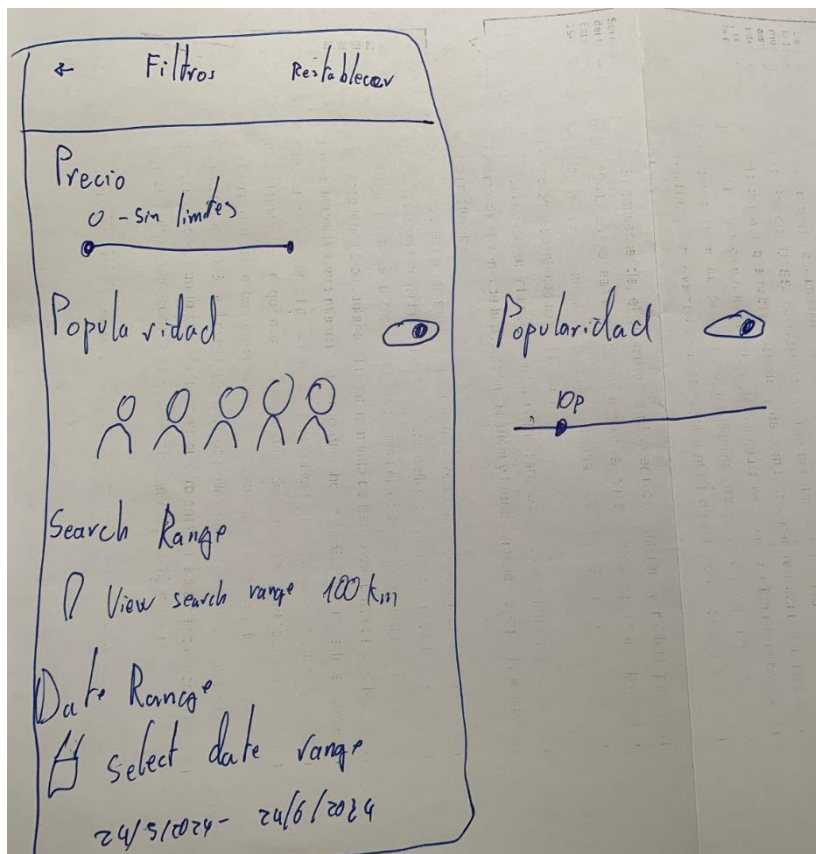 ← Filtros Restablecer
Precio
0 - sin limites
Popularidad
Search Range
View search range 100 km
Date Range
Select date range
24/5/2024 - 24/6/2024
Popularidad
10p